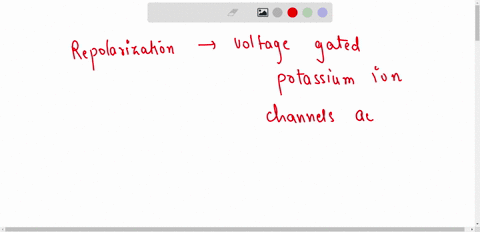 Repolarization → voltage gated
potassium ion
channels ac